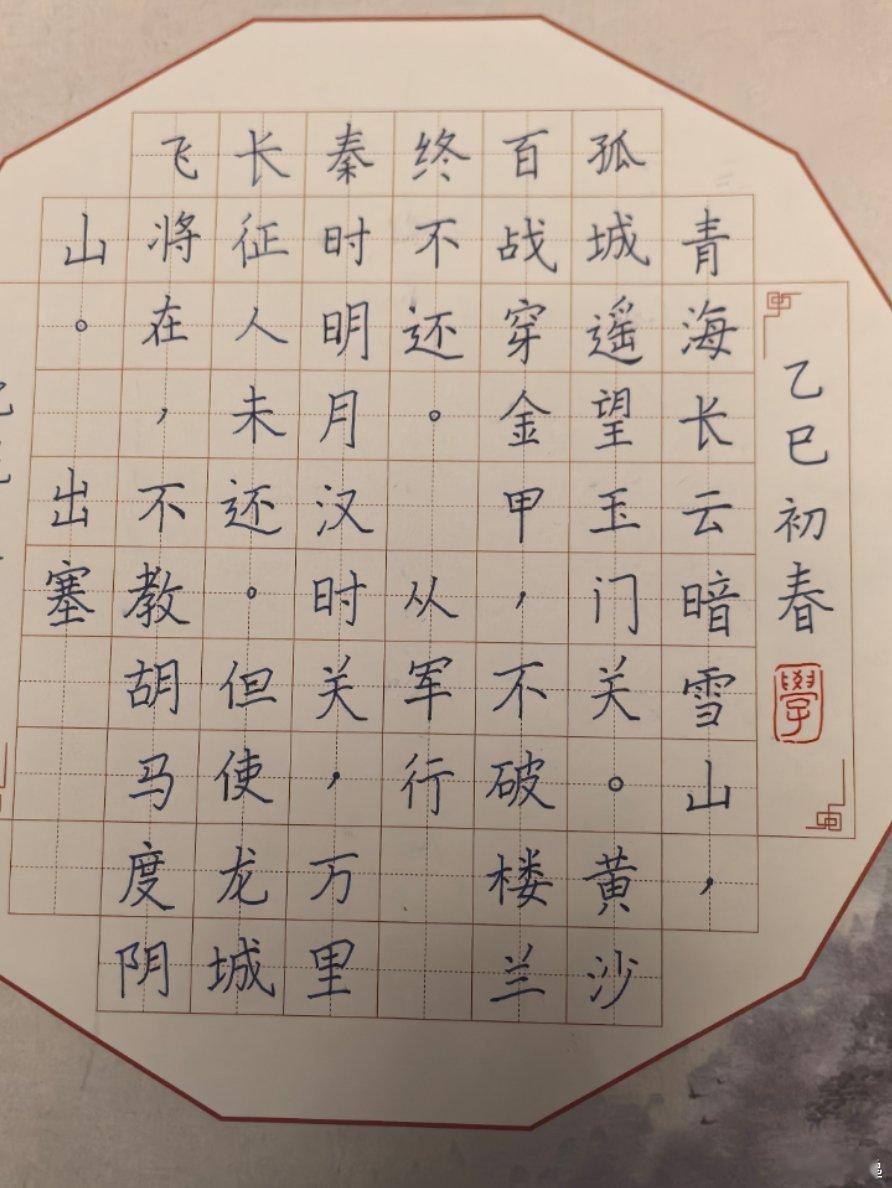 乙巳初春
學
青海长云暗雪山，
孤城遥望玉门关。黄沙
百战穿金甲，不破楼兰
终不还。 从军行
秦时明月汉时关，万里
长征人未还。但使龙城
飞将在，不教胡马度阴
山。 出塞